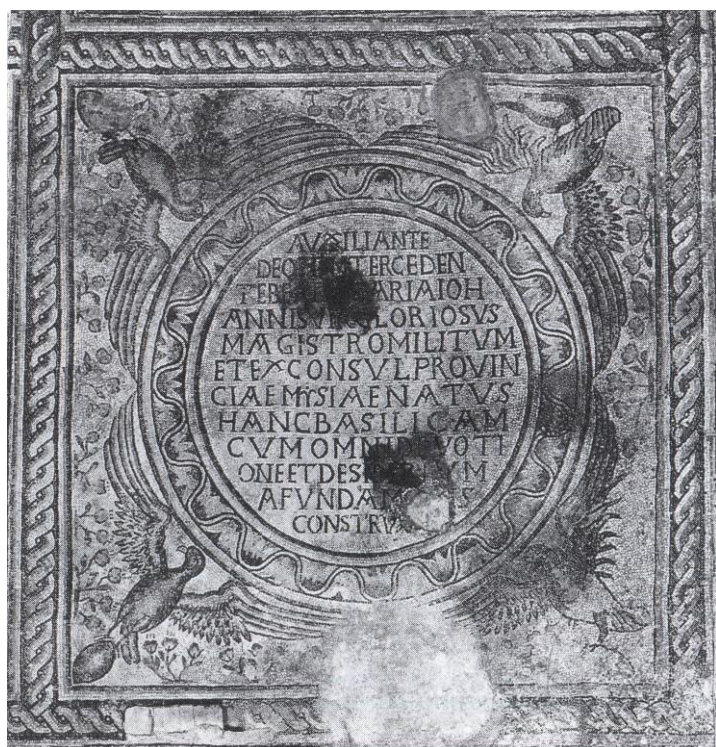 AUXILIANTE
DEO ET INTERCEDEN
TE BEATA MARIA IOH
ANNIS VIR GLORIOSUS
MAGISTRO MILITUM
ET EX CONSUL PROVIN
CIAE MYSIAE NATUS
HANC BASILICAM
CUM OMNI DEVOTI
ONE ET
A FUNDAMENTIS